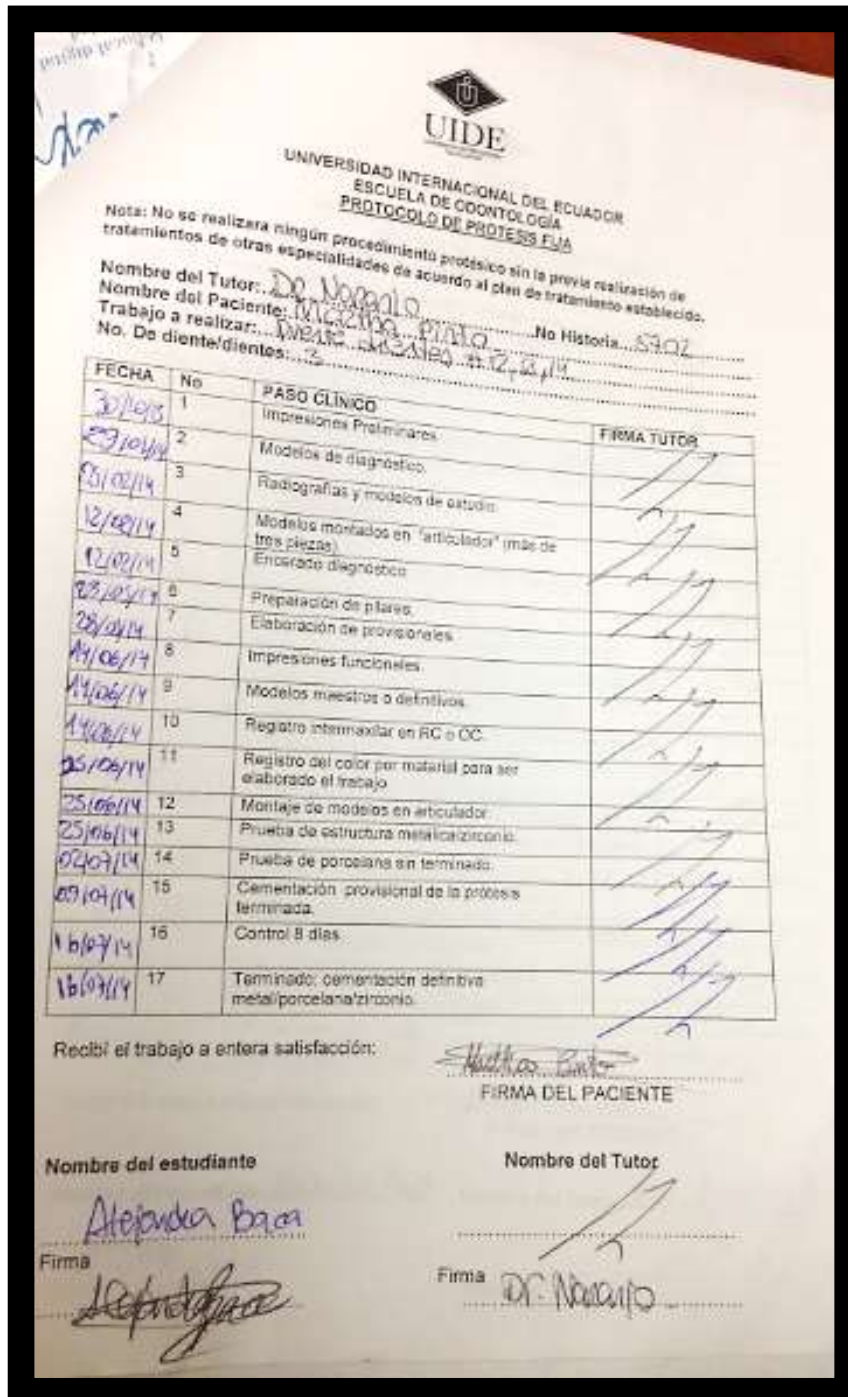 UIDE
UNIVERSIDAD INTERNACIONAL DEL ECUADOR
ESCUELA DE ODONTOLOGÍA
PROTOCOLO DE PROTESIS FIJA
Nota: No se realizara ningún procedimiento protésico sin la previa realización de
tratamientos de otras especialidades de acuerdo al plan de tratamiento establecido.
Nombre del Tutor: Dr Naranjo
Nombre del Paciente: Martha Pinto No Historia 5702
Trabajo a realizar: Puente dientes # 12, 13, 14
No. De diente/dientes: 3
FECHA No PASO CLÍNICO FIRMA TUTOR
1 Impresiones Preliminares
2 Modelos de diagnóstico.
3 Radiografías y modelos de estudio
4 Modelos montados en "articulador" (más de
tres piezas)
12/02/14 5 Encerado diagnostico
6 Preparación de pilares.
7 Elaboración de provisionales
14/06/14 8 Impresiones funcionales
14/06/14 9 Modelos maestros o definitivos.
14/06/14 10 Registro intermaxilar en RC o OC.
25/06/14 11 Registro del color por material para ser
elaborado el trabajo
25/06/14 12 Montaje de modelos en articulador
25/06/14 13 Prueba de estructura metalica/zirconio.
02/07/14 14 Prueba de porcelana sin terminado.
09/07/14 15 Cementación provisional de la protesis
terminada.
16/07/14 16 Control 8 dias
16/07/14 17 Terminado: cementación definitiva
metal/porcelana/zirconio.
Recibí el trabajo a entera satisfacción:
Martha Pinto
FIRMA DEL PACIENTE
Nombre del estudiante Nombre del Tutor
Alejandra Baca
Firma Firma Dr. Naranjo